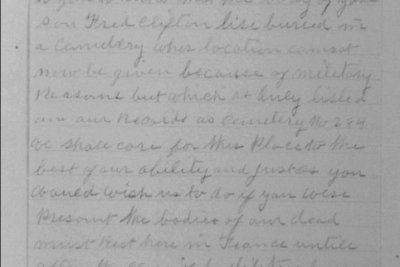 son Fred Clifton lise buried in
a Cemetery whos location cannot
now be given because of military
Reasons but which is duly listed
on our Records as Cemetery No 284
we shale care for this Place to the
best of our ability and just as you
would wish us to do if you wese
Present the bodies of our dead
must Rest here in France untile
after the